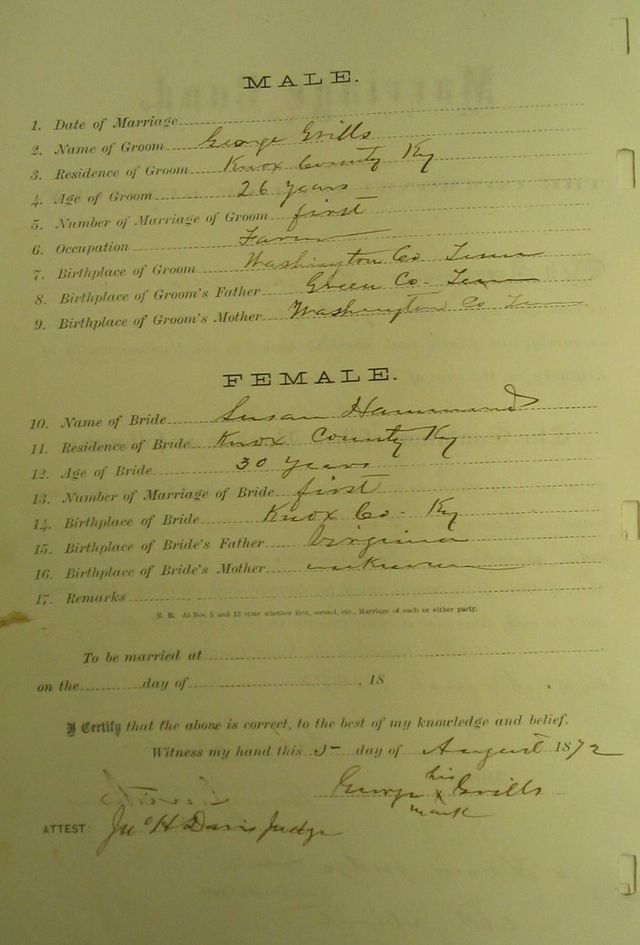 MALE.
1. Date of Marriage
2. Name of Groom George Grills
3. Residence of Groom Knox County Ky
4. Age of Groom 26 years
5. Number of Marriage of Groom first
6. Occupation Farmer
7. Birthplace of Groom Washington Co Tenn
8. Birthplace of Groom's Father Green Co- Tenn
9. Birthplace of Groom's Mother Washington Co Tenn
FEMALE.
10. Name of Bride Susan Hammond
11. Residence of Bride Knox County Ky
12. Age of Bride 30 years
13. Number of Marriage of Bride first
14. Birthplace of Bride Knox Co- Ky
15. Birthplace of Bride's Father Virginia
16. Birthplace of Bride's Mother unknown
17. Remarks
N. B. At Nos. 5 and 13 state whether first, second, etc., Marriage of each or either party.
To be married at
on the day of , 18
I Certify that the above is correct, to the best of my knowledge and belief.
Witness my hand this 5- day of August 1872
his
George x Grills
mark
ATTEST: Jno H Davis Judge